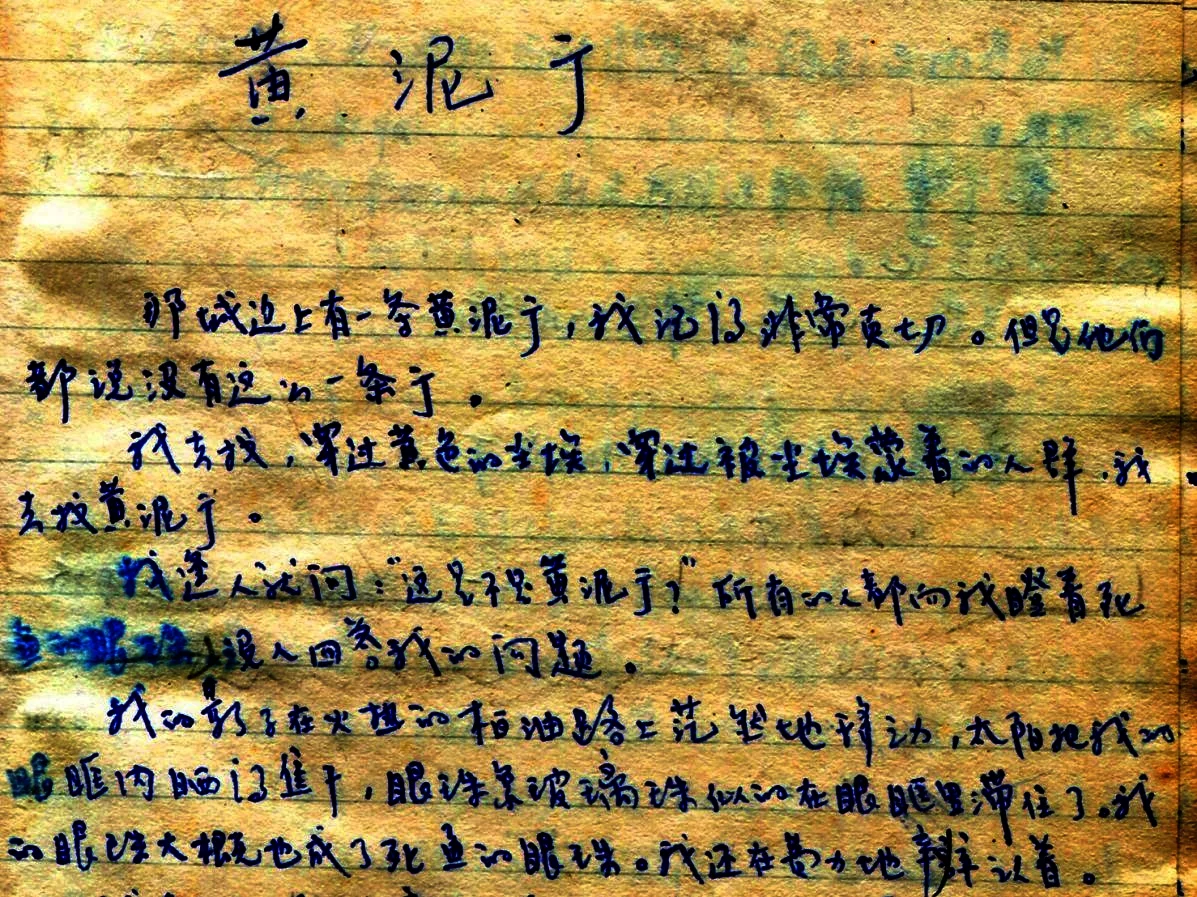 黄泥亍
那城边上有一条黄泥亍，我记得非常真切。但是他们
都说没有这么一条亍。
我去找，穿过黄色的尘埃，穿过被尘埃蒙着的人群，我
去找黄泥亍。
我逢人就问：“这是不是黄泥亍？”所有的人都向我瞪着死
鱼的眼珠，没人回答我的问题。
我的影子在火热的柏油路上茫然地移动，太阳把我的
眼眶内晒得焦干，眼珠象玻璃珠似的在眼眶里滞住了。我
的眼珠大概也成了死鱼的眼珠。我还在费力地辨认着。